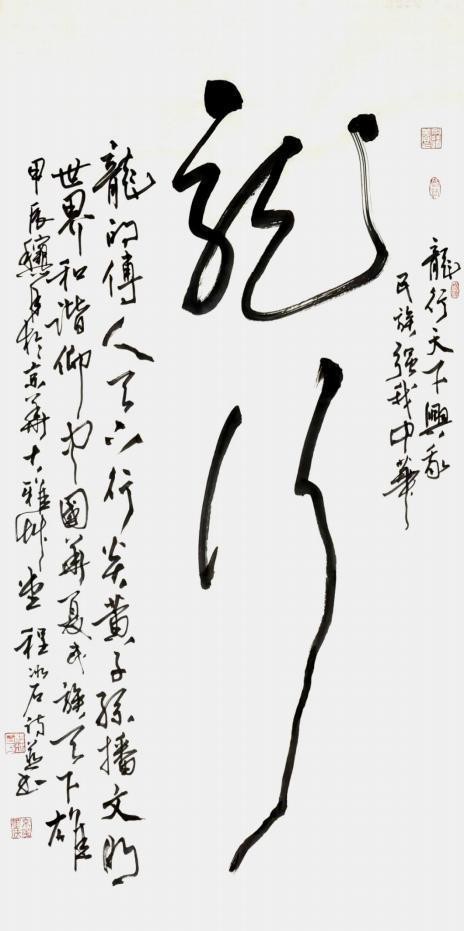 龍行天下興我
民族強我中華
龍行
龍的傳人天下行炎黃子孫播文明
世界和諧仰中國華夏民族天下雄
甲辰龝月於京華大雅艸堂程冰石詩並書